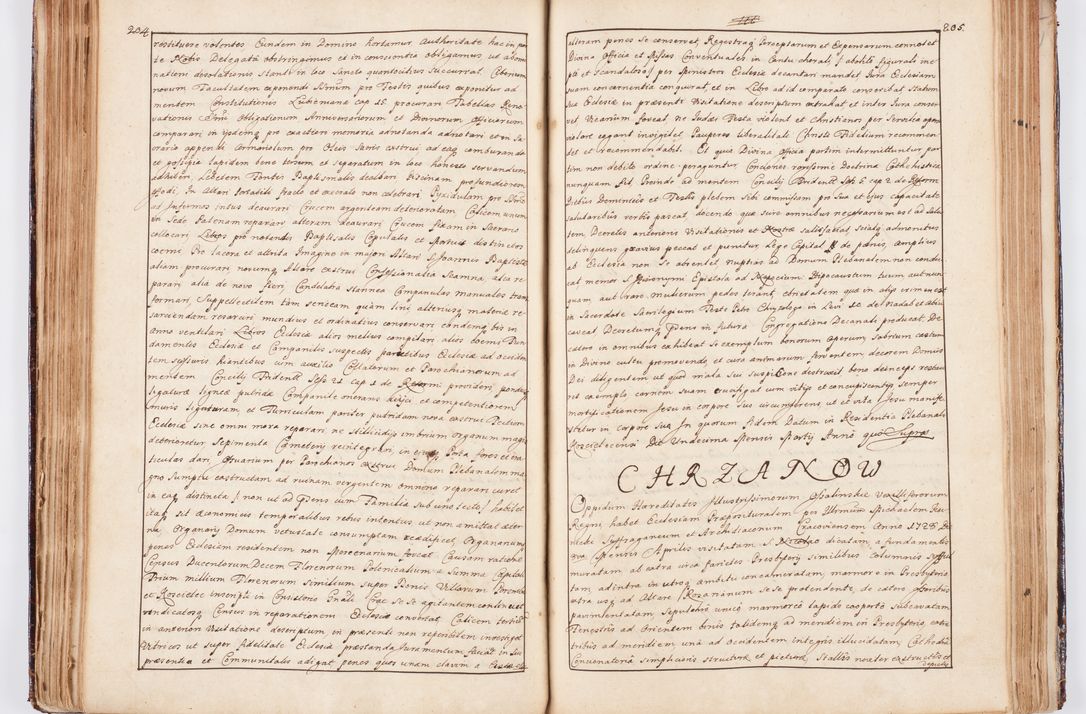 204
restituere volentes Eundem in Domino hortamur Authoritate hac in par
te Nobis Delegata obstringimus et in conscientia obligamus ut abomi
nationi desolationis stanti in loco Sancto quantocitius succurrat. Cibonum
novum Facultatem exponendi pro Festis quibus exponitur ad
mentem Constitutionis cap 15 procurari Tabellas Reno
vationis Obligationum Anniversariorum et Divinorum Officiorum
comparari in ijsdemq pro exactiori memoria adnotanda adnotari et in Sa
crario appendi pro Oleis Sacris costrui ad eaq comburanda
et lapidem bene tersum et separatum in loco honesto servandum
adhiberi, Fontis Baptismalis dealbari Piscinam profundiorem
fodi. In Altari Portatili fracto et execrato non celebrari Pyxidulam pro
ad Infirmos intus deaurari Crucem argenteam deterioratam Calicem unum
in Sede Patenam reparari alteram deaurari Crucem fixam in Sacrario
collocari Libros pro notandis Baptisatis Copulatis et Mortuis distinctos
coemi Pro lacera et attrita Imagine in majori Altari S. Joannis Baptistæ
aliam procurari, novumq Altare exstrui Confessionalia Scamna, alia re
parari alia de novo fieri Candelabra Stannea Campanulas manuales trans
formari, Suppellectilem tàm sericeam quàm lini alteriusq materiæ re
sarciendam resarciri mundius et ordinatius conservari eandemq bis in
Anno ventilari Libros Ecclesiæ alios melius compilari alios coemi Fun
damentis Ecclesiæ et Campanilis suspectis parietibus Ecclesiæ ad occiden
tem scissuris hiantibus cum auxilio Collatorum et Parochianorum ad
mentem Concilij Tridentt Sess 21 cap 2 de Reform providere pondus
ligaturæ ligneæ putridæ Campanile onerans dejici et competentiorem
muris ligaturam et Turriculam pariter putridam nova exstrui Tectum
Ecclesiæ sine omni mora reparari ne stillicidijs imbrium organum magis
deterioretur Sepimenta Cæmeterij reintegrari, in eoq Porta fores et cra
ticulas dari. Ossuarium per Parochianos exstrui Domum Plebanalem ma
gno Sumptu exstructam ad ruinam vergentem omnino reparari curet
in eaq distincta / non ut ad præns cum Familia sub uno tecto / habitet
Itaq sit œconomicis temporalibus rebus intentus, ut non amittat æter
na. Organarij Domum vetustate consumptam reædificet, Organarium
penes Ecclesiam residentem non Mercenarium foveat Causam ratione
Census Ducentorum Decem Florenorum Polonicalium a Summa Capitali
Trium millium Florenorum similium super Bonis Villarum
et Koscielec inscripta in Consistorio Gnali Crac se se agitantem continuet
vindicatoq Census in reparationem Ecclesiæ convertat, Calicem tertium
in anteriori Visitatione descriptum in præsenti non repertibilem investiget
Vitricos ut super fidelitate Ecclesiæ præstanda Juramentum faciant in sui
præsentia et Communitatis adigat penes quos unam clavim a
205.
alteram penes se conservet, Regestraq Perceptarum et Expensarum connotet
Divina Officia et Missas Conventuales in Cantu chorali / abolito figurali ine
pto et scandaloso / per Ministros Ecclesiæ decantari mandet Jura Ecclesiam
suam concernentia conquirat, et in Libro ad id comparato conscribat Statum
suæ Ecclesiæ in præsenti Visitatione descriptum extrahat et inter Jura conser
vet Vicarium foveat, ne Judæi Festa violent et Christianos per Servitia
violare cogant invigilet, Pauperes liberalitati Christi Fidelium recommen
det et recommendabit. Et quia Divina officia partim intermittuntur par
tim non debito ordine peraguntur Conciones rarissime Doctrina Cathechistica
nunquam fit, Proinde ad mentem Concilij Tridentt Sess 5 cap 2 de Reform
Diebus Dominicis et Festis plebem sibi commissam pro sua et ejus capacitate
salutaribus verbis pascat, docendo quæ scire omnibus necessarium est ad Salu
tem Decretis anterioris Visitationis et Nostræ satisfaciat, sciatq admonitus
delinquens gravius peccat et punitur Lege Capital ff de pœnis, Amplius
et Ecclesia non se absentet nuptias ad Domum Plebanalem non condu
cat memor S. Hieronymi Epistola ad Nepotianum Hospitiolum tuum aut nun
quam aut rarò mulierum pedes terant, ebrietatem quæ in alijs crimen est
in Sacerdote Sacrilegium Teste Petro Chrysologo in Levi 10 de Nadab et Abiu
caveat Decretumq Præns in futura Congregatione Decanali producat. De
cætero in omnibus exhibeat se exemplum bonorum operum Sobrium castum
in Divino cultu promovendo, et cura animarum ferventem, decorem Domus
Dei diligentem ut quod mala sui suspicione destruxit bono deinceps restau
ret exemplo, carnem suam crucifigat cum vitijs et concupiscentijs, semper
mortificationem Jesu in corpore suo circumferens, ut et vita Jesu manife
stetur in corpore suo In quorum Fidem Datum in Residentia Plebanali
Koscielecensi Die Undecima Mensis Martij Anno quo Supra
CHRZANOW
Oppidum Hæreditatis Illustrissimorum Ossolinskie Vexilliferorum
Regni, habet Ecclesiam Præposituralem per Illrmum Michaelem
Suffraganeum et Archidiaconum Cracoviensem Anno 1728 Die
Mensis Aprilis visitatam S. Nicolao dicatam a fundamentis
muratam, ab extra circa parietes Presbyterij similibus columnis Sufful
tam, ad intra in utroq ambitu concameratam, marmore in Presbyterio
extra usq ad Altare Rosarianum se se protendente, de cætero lateribus
pavimentatam, Sepulchro unico marmoreo lapide cooperto subcavatam
Fenestris ad Orientem binis totidemq ad meridiem in Presbyterio, extra
tribus ad meridiem, una ad occidentem integris illuminatam Cathedra
Concionatoria simplicioris structuræ et picturæ, Stallis noviter exstructis et
depictis